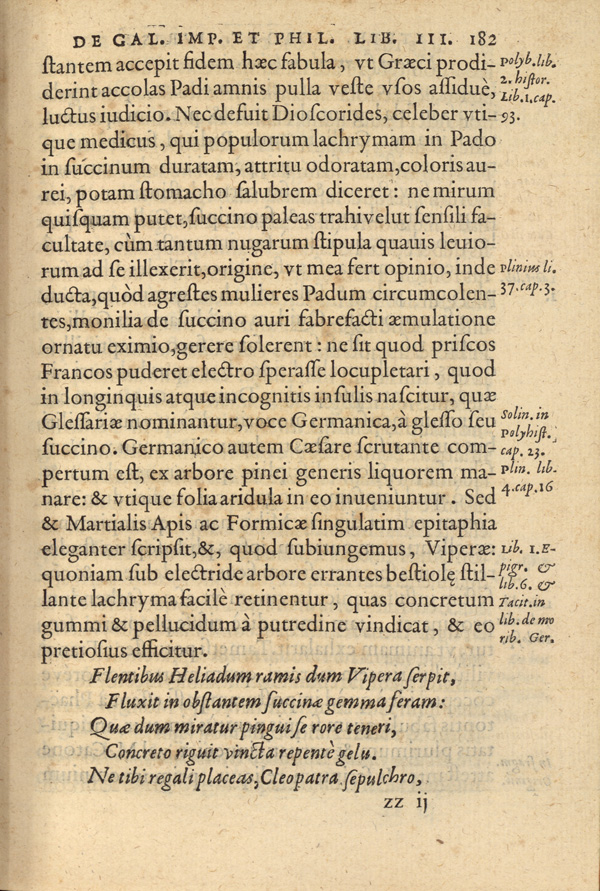 DE GAL. IMP. ET PHIL. LIB. III. 182
ſtantem accepit fidem hæc fabula, vt Græci prodi-
derint accolas Padi amnis pulla veſte vſos aſſiduè,
luctus iudicio. Nec defuit Dioſcorides, celeber vti-
que medicus, qui populorum lachrymam in Pado
in ſuccinum duratam, attritu odoratam, coloris au-
rei, potam ſtomacho ſalubrem diceret: ne mirum
quiſquam putet, ſuccino paleas trahi velut ſenſili fa-
cultate, cùm tantum nugarum ſtipula quauis leuio-
rum ad ſe illexerit, origine, vt mea fert opinio, inde
ducta, quòd agreſtes mulieres Padum circumcolen-
tes, monilia de ſuccino auri fabrefacti æmulatione
ornatu eximio, gerere ſolerent: ne ſit quod priſcos
Francos puderet electro ſperaſſe locupletari, quod
in longinquis atque incognitis inſulis naſcitur, quæ
Gleſſariæ nominantur, voce Germanica, à gleſſo ſeu
ſuccino. Germanico autem Cæſare ſcrutante com-
pertum eſt, ex arbore pinei generis liquorem ma-
nare: & vtique folia aridula in eo inueniuntur. Sed
& Martialis Apis ac Formicæ ſingulatim epitaphia
eleganter ſcripſit, &, quod ſubiungemus, Viperæ:
quoniam ſub electride arbore errantes beſtiolę ſtil-
lante lachryma facilè retinentur, quas concretum
gummi & pellucidum à putredine vindicat, & eo
pretioſius efficitur.
Flentibus Heliadum ramis dum Vipera ſerpit,
Fluxit in obſtantem ſuccina gemma feram:
Quæ dum miratur pingui ſe rore teneri,
Concreto riguit vincta repentè gelu.
Ne tibi regali placeas, Cleopatra ſepulchro,
zz ij
Polyb. lib.
2. hiſtor.
Lib. 1. cap.
93.
Plinius li.
37. cap. 3.
Solin. in
Polyhiſt.
cap. 23.
Plin. lib.
4. cap. 16
Lib. 1. E-
pigr. &
lib. 6. &
Tacit. in
lib. de mo
rib. Ger.